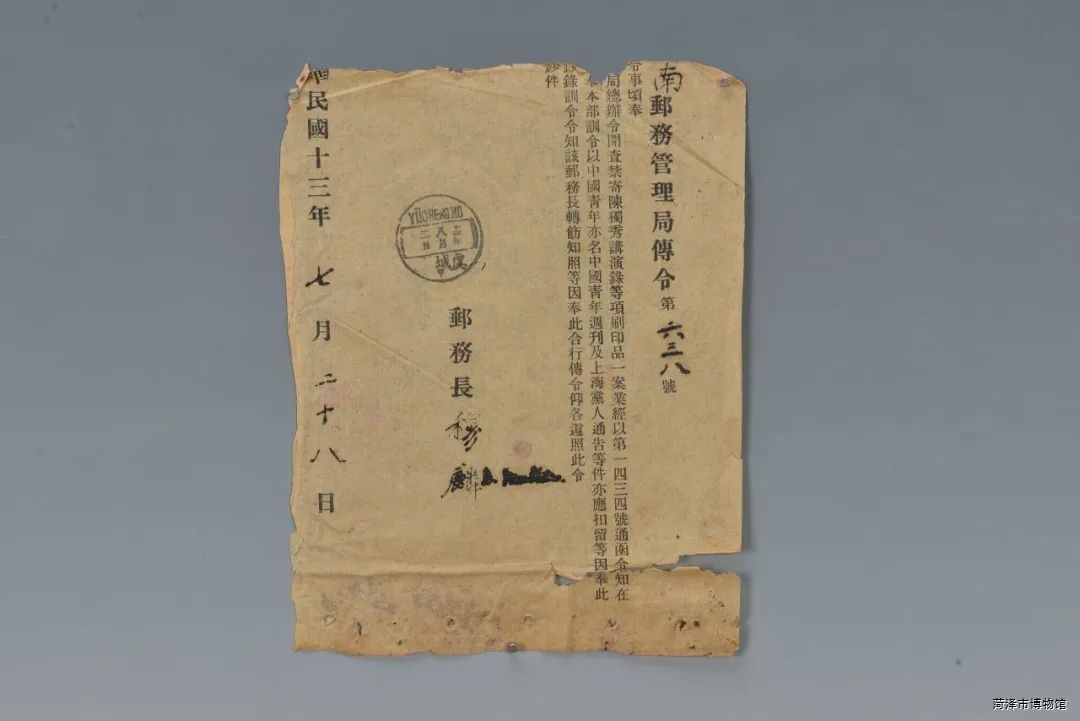 南郵務管理局傳令第六三八號
令事頃奉
局總辦令開查禁寄陳獨秀講演錄等項刷印品一案業經以第一四三四號通函令知在
本部訓令以中國青年亦名中國青年週刊及上海黨人通告等件亦應扣留等因奉此
錄訓令令知該郵務長轉飭知照等因奉此合行傳令仰各遵照此令
件
郵務長
穆
麟
YÜCHENG HO
十三年
八月
二
虞城
華民國十三年七月二十八日
菏泽市博物馆